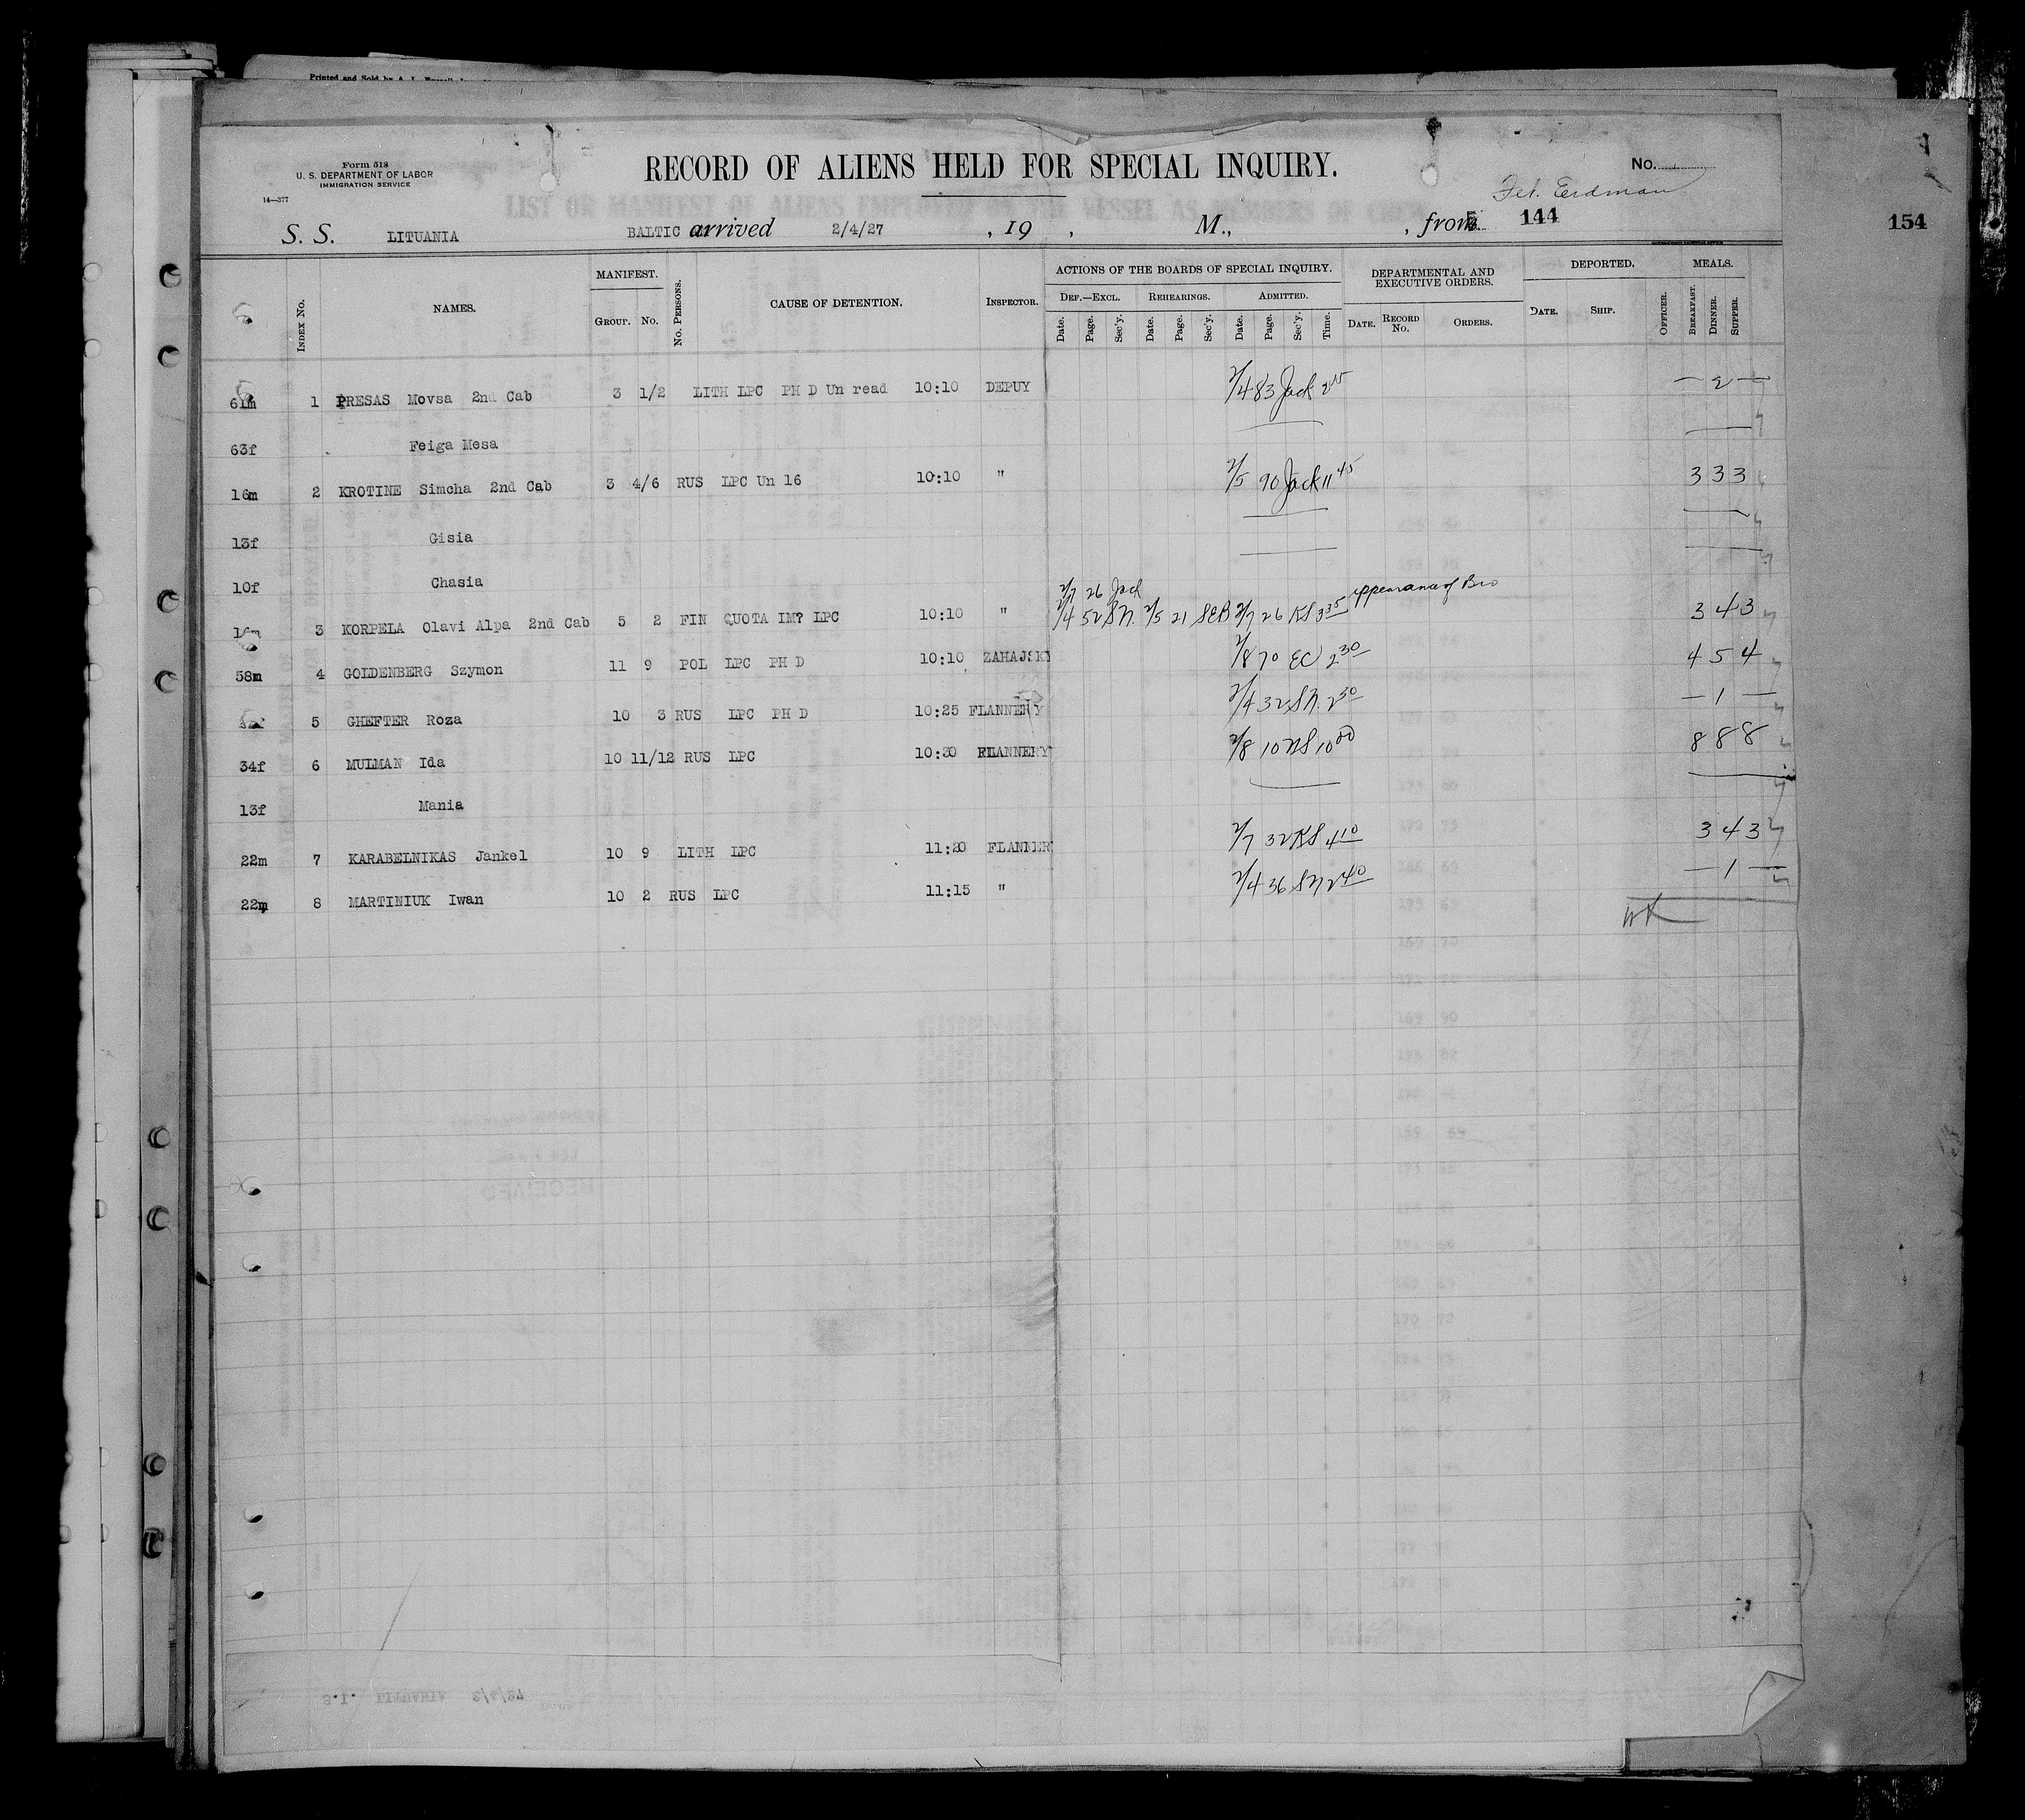 Printed and Sold by A. L.
Form 512
U. S. DEPARTMENT OF LABOR
IMMIGRATION SERVICE
14—377
RECORD OF ALIENS HELD FOR SPECIAL INQUIRY.
No.
Erdman
S. S. LITUANIA BALTIC arrived 2/4/27 , 19 , M., , from 144
154
INDEX No. NAMES. MANIFEST. GROUP. No. No. PERSONS. CAUSE OF DETENTION. INSPECTOR.
ACTIONS OF THE BOARDS OF SPECIAL INQUIRY. DEF.—EXCL. Date. Page. Sec'y. REHEARINGS. Date. Page. Sec'y. ADMITTED. Date. Page. Sec'y. Time.
DEPARTMENTAL AND EXECUTIVE ORDERS. DATE. RECORD No. ORDERS.
DEPORTED. DATE. SHIP. OFFICER. MEALS. BREAKFAST. DINNER. SUPPER.
61m 1 PRESAS Movsa 2nd Cab 3 1/2 LITH LPC PH D Un read 10:10 DEPUY 2/4 83 Jack 2 15 — 2 —
63f Feiga Mesa
16m 2 KROTINE Simcha 2nd Cab 3 4/6 RUS LPC Un 16 10:10 " 2/5 90 Jack 11 45 3 3 3
13f Gisia
10f Chasia
2/7 26 Jack
16m 3 KORPELA Olavi Alpa 2nd Cab 5 2 FIN QUOTA IM? LPC 10:10 " 2/4 52 SN. 2/5 21 SEB 2/7 26 KS 3 35 appearance of Bro 3 4 3
58m 4 GOLDENBERG Szymon 11 9 POL LPC PH D 10:10 ZAHAJSKY 2/8 70 EC 2 30 4 5 4
5 GHEFTER Roza 10 3 RUS LPC PH D 10:25 FLANNERY 2/4 32 SN. 2 50 — 1 —
34f 6 MULMAN Ida 10 11/12 RUS LPC 10:30 FLANNERY 2/8 10 NS 10 00 8 8 8
13f Mania
22m 7 KARABELNIKAS Jankel 10 9 LITH LPC 11:20 FLANNER 2/7 32 KS 4 10 3 4 3
22m 8 MARTINIUK Iwan 10 2 RUS LPC 11:15 " 2/4 36 SN 2 40 — 1 —
WK